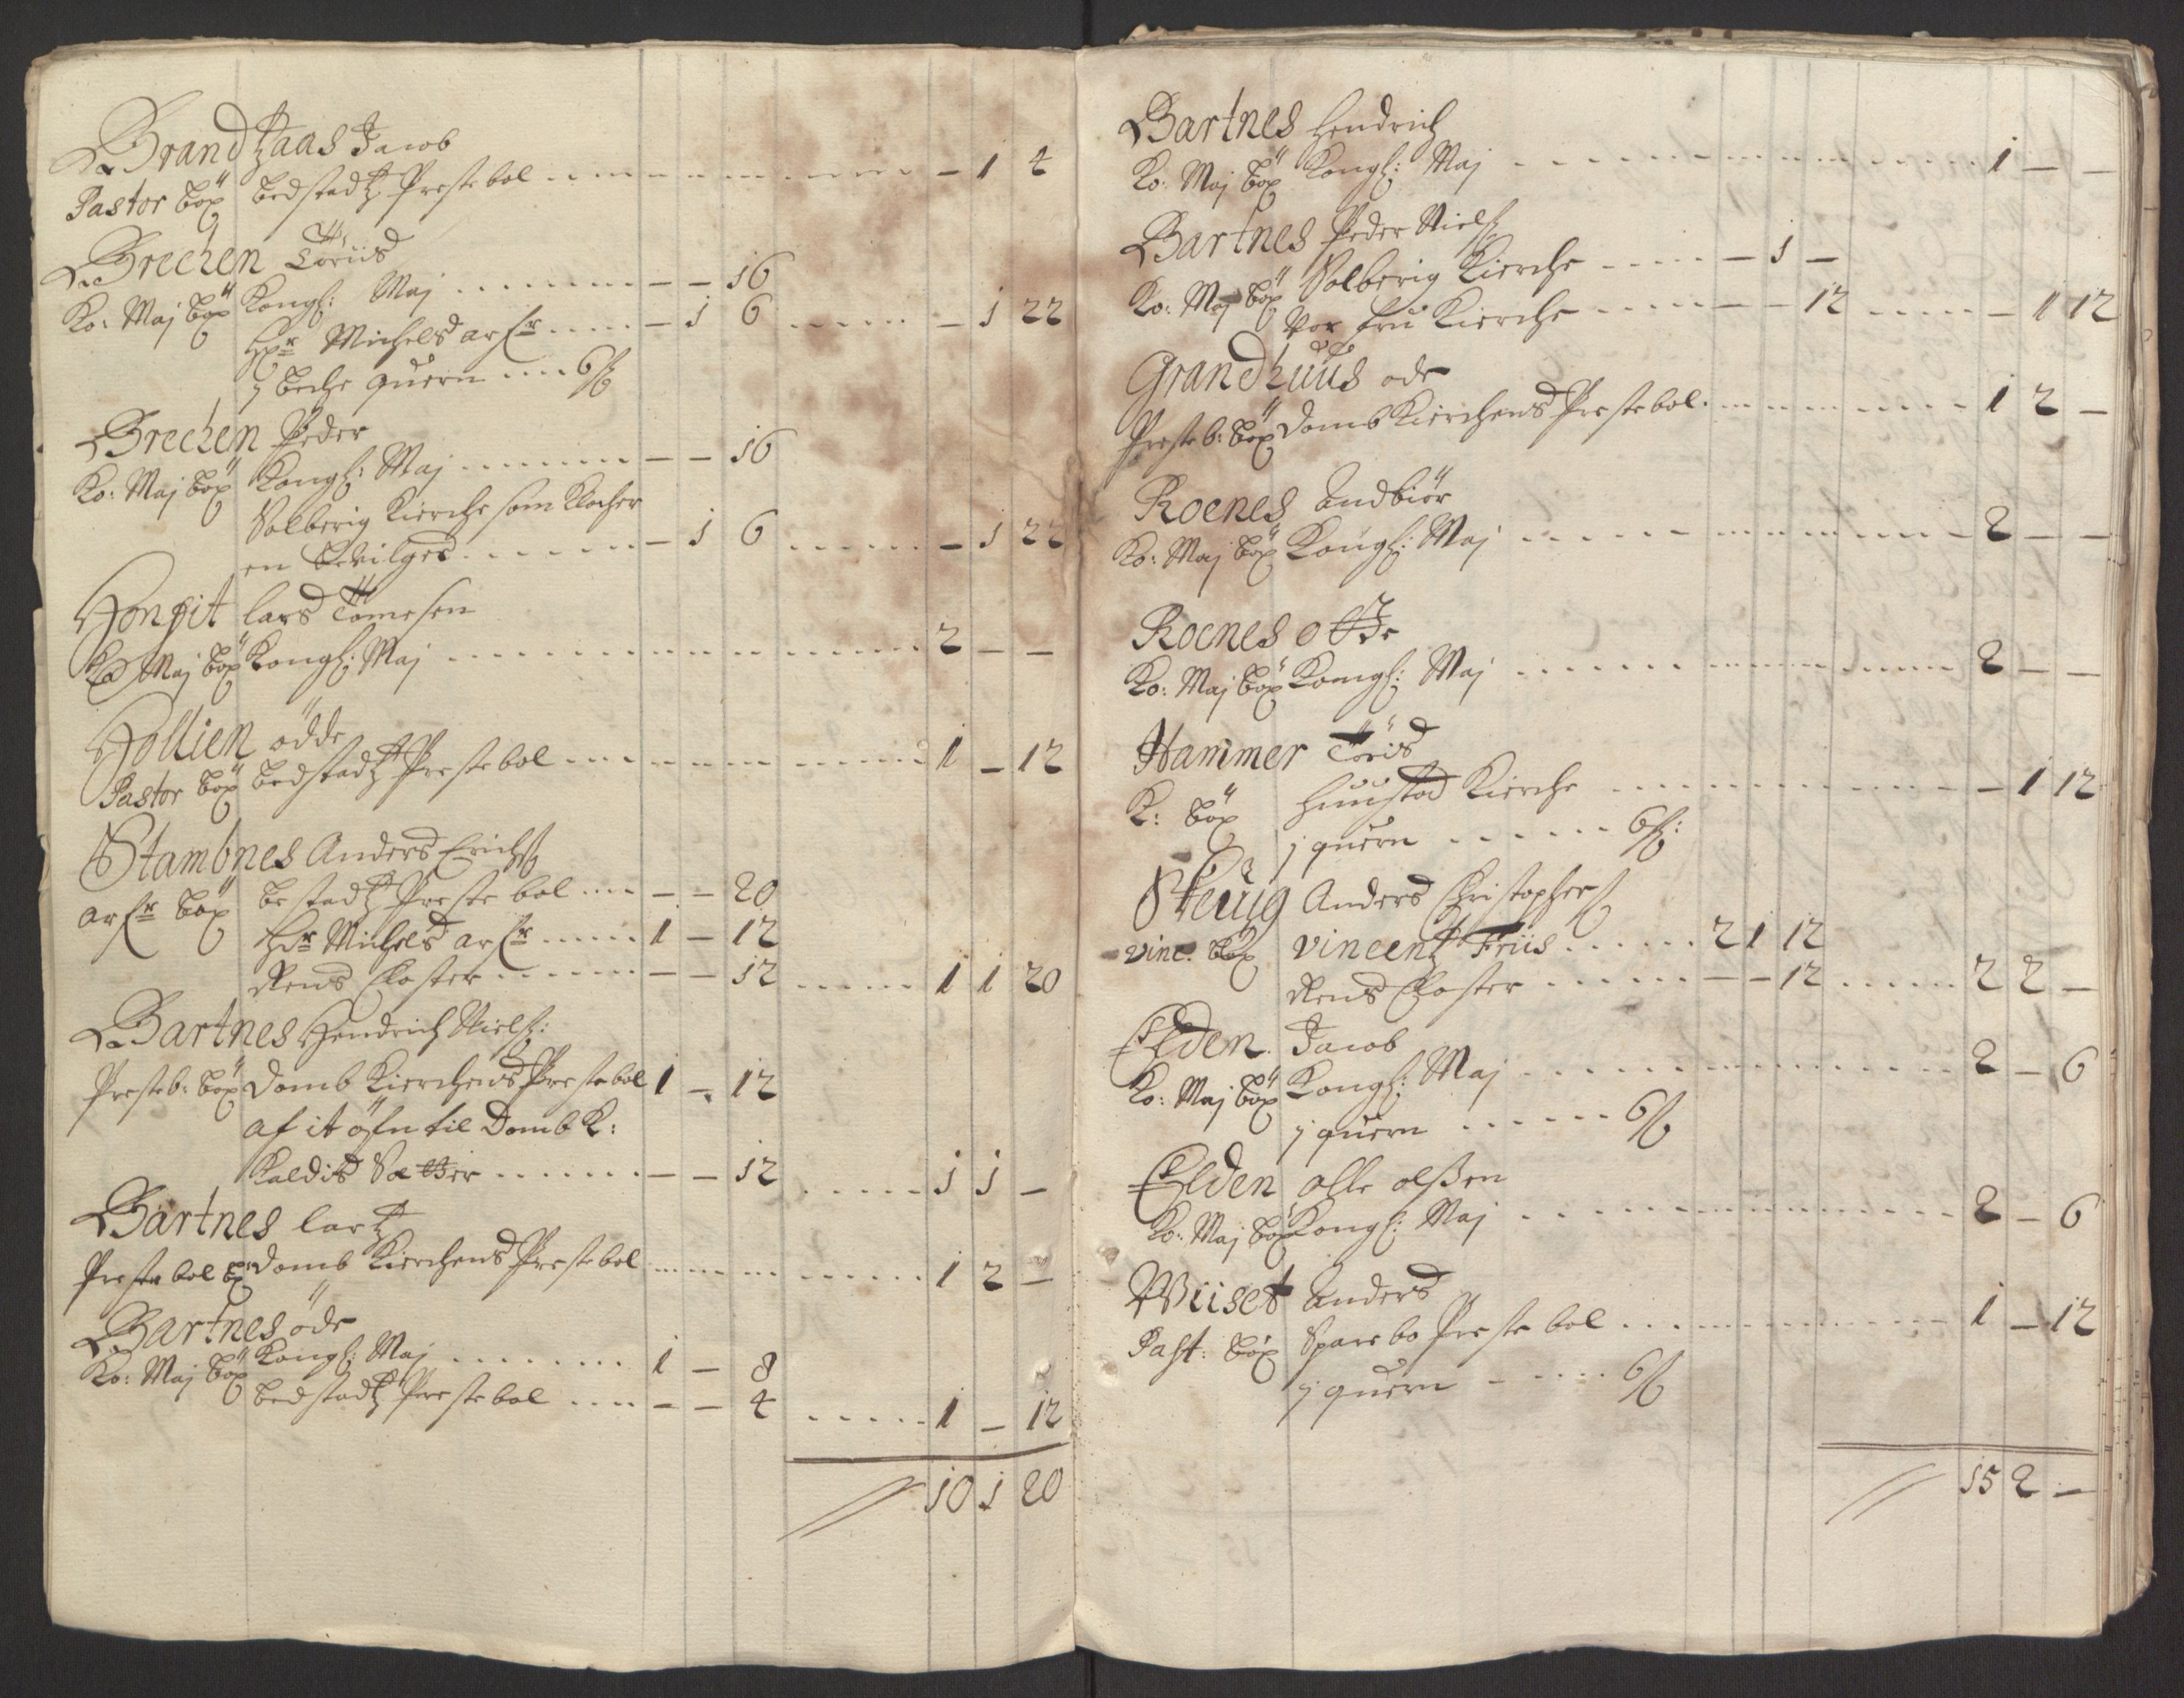 Brandtzaas Jacob
Pastor böx bedstadtz Prestebol - 1 4
Brechen Töriis
Ko: Maj böx Kongl: Maj - - 16
Hr Michels arfr - 1 6 - 1 22
j beche quern 6 ß
Brechen Peder
Ko: Maj böx Kongl: Maj - - 16
Solberig Kierche som Klocher
en bevilged - 1 6 - 1 22
Hongit lars Tomesen
Ko Maj böx Kongl: Maj 2 - -
Hollien ödde
Pastor böx bedstadtz Prestebol 1 - 12
Stambnes Anders Erichß
arfr böx bestadtz Preste bol - - 20
Hr Michels arfr 1 - 12
Rens Closter - - 12 1 1 20
Bartnes Hendrich Nielß:
Presteb: böx Domb Kierchens Prestebol 1 - 12
af it öfn til Domb K:
Kaldis Sætter - - 12 1 1 -
Bartnes lartz
Preste bol bx domb Kierchens Prestebol 1 2 -
Bartnes öde
Ko: Maj böx Kongl: Maj 1 - 8
bedstadtz Prestebol - - 4 1 - 12
10 1 20
Bartnes Hendrich
Ko: Maj böx Kongl: Maj 1 - -
Bartnes Peder Nielß
Ko: Maj böx Solberig Kierche - 1 -
Vor fru Kierche - - 12 - 1 12
Grandhuus øde
Presteb: böx Domb Kierchens Prestebol 1 2 -
Roenes Andbiör
Ko: Maj böx Kongl: Maj 2 - -
Roenes otte
Ko: Maj böx Kongl: Maj 2 - -
Hammer Töris
K: böx Huustad Kierche - 1 12
j quern 6 ß:
Steuig Anders Christopherß
vinc. böx vincentz Friis 2 1 12
Rens Closter - - 12 2 2 -
Elden Jacob
Ko: Maj böx Kongl: Maj 2 - 6
j quern 6 ß
Elden olle olßen
Ko: Maj böx Kongl: Maj 2 - 6
Wiiset Anders
Past: böx Sparebo Preste bol 1 - 12
j quern 6 ß
15 2 -